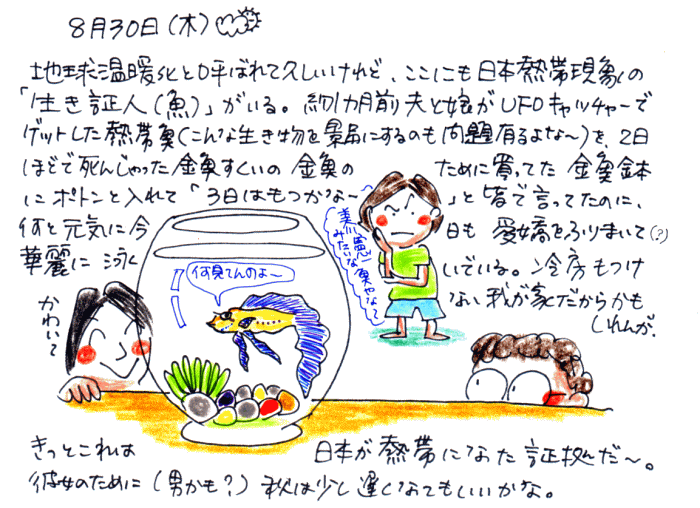 8月30日(木)
地球温暖化と呼ばれて久しいけれど、ここにも日本熱帯現象の
「生き証人(魚)」がいる。約1カ月前夫と娘がUFOキャッチャーで
ゲットした熱帯魚(こんな生き物を景品にするのも問題有るよな〜)を、2日
ほどで死んじゃった金魚すくいの金魚の ために買ってた金魚鉢
にポトンと入れて「3日はもつかな〜 」と皆で言ってたのに、
何と元気に今 日も愛嬌をふりまいて(?)
華麗に泳 いでいる。冷房もつけ
ない我が家だからかも
しれんが。
かわいて
何見てんのよ〜
美川憲一
みたいな
魚やなぁ
きっとこれは 日本が熱帯になった証拠だ〜。
彼女のために(男かも?)秋は少し遅くなってもいいかな。